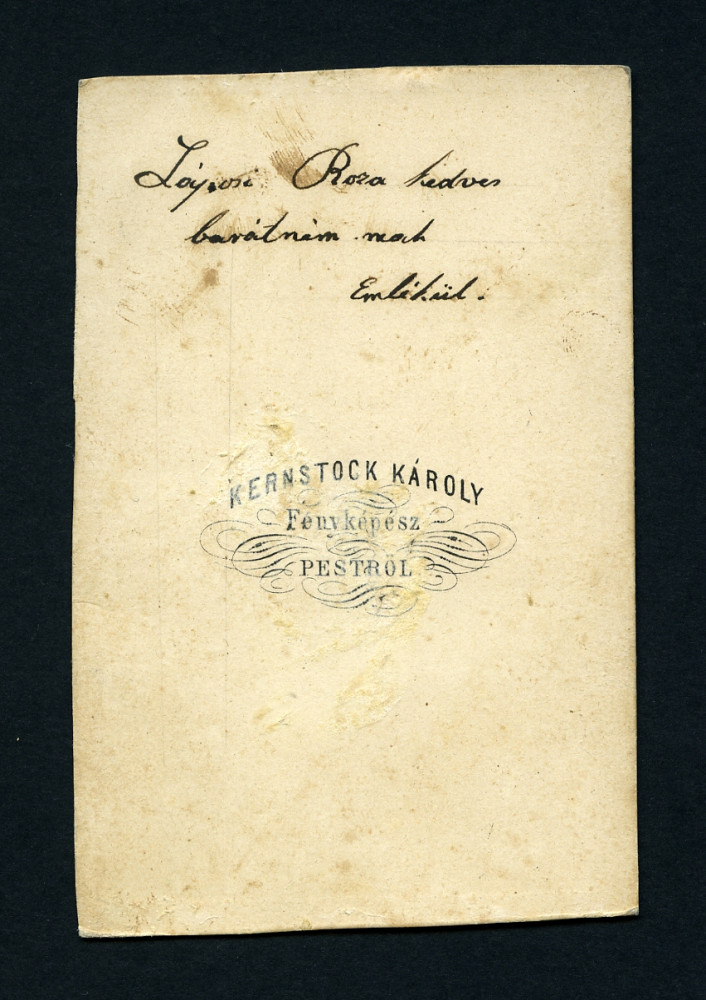 Roza kedves
barátném nak
Emlékül.
KERNSTOCK KÁROLY
Fényképész
PESTRŐL